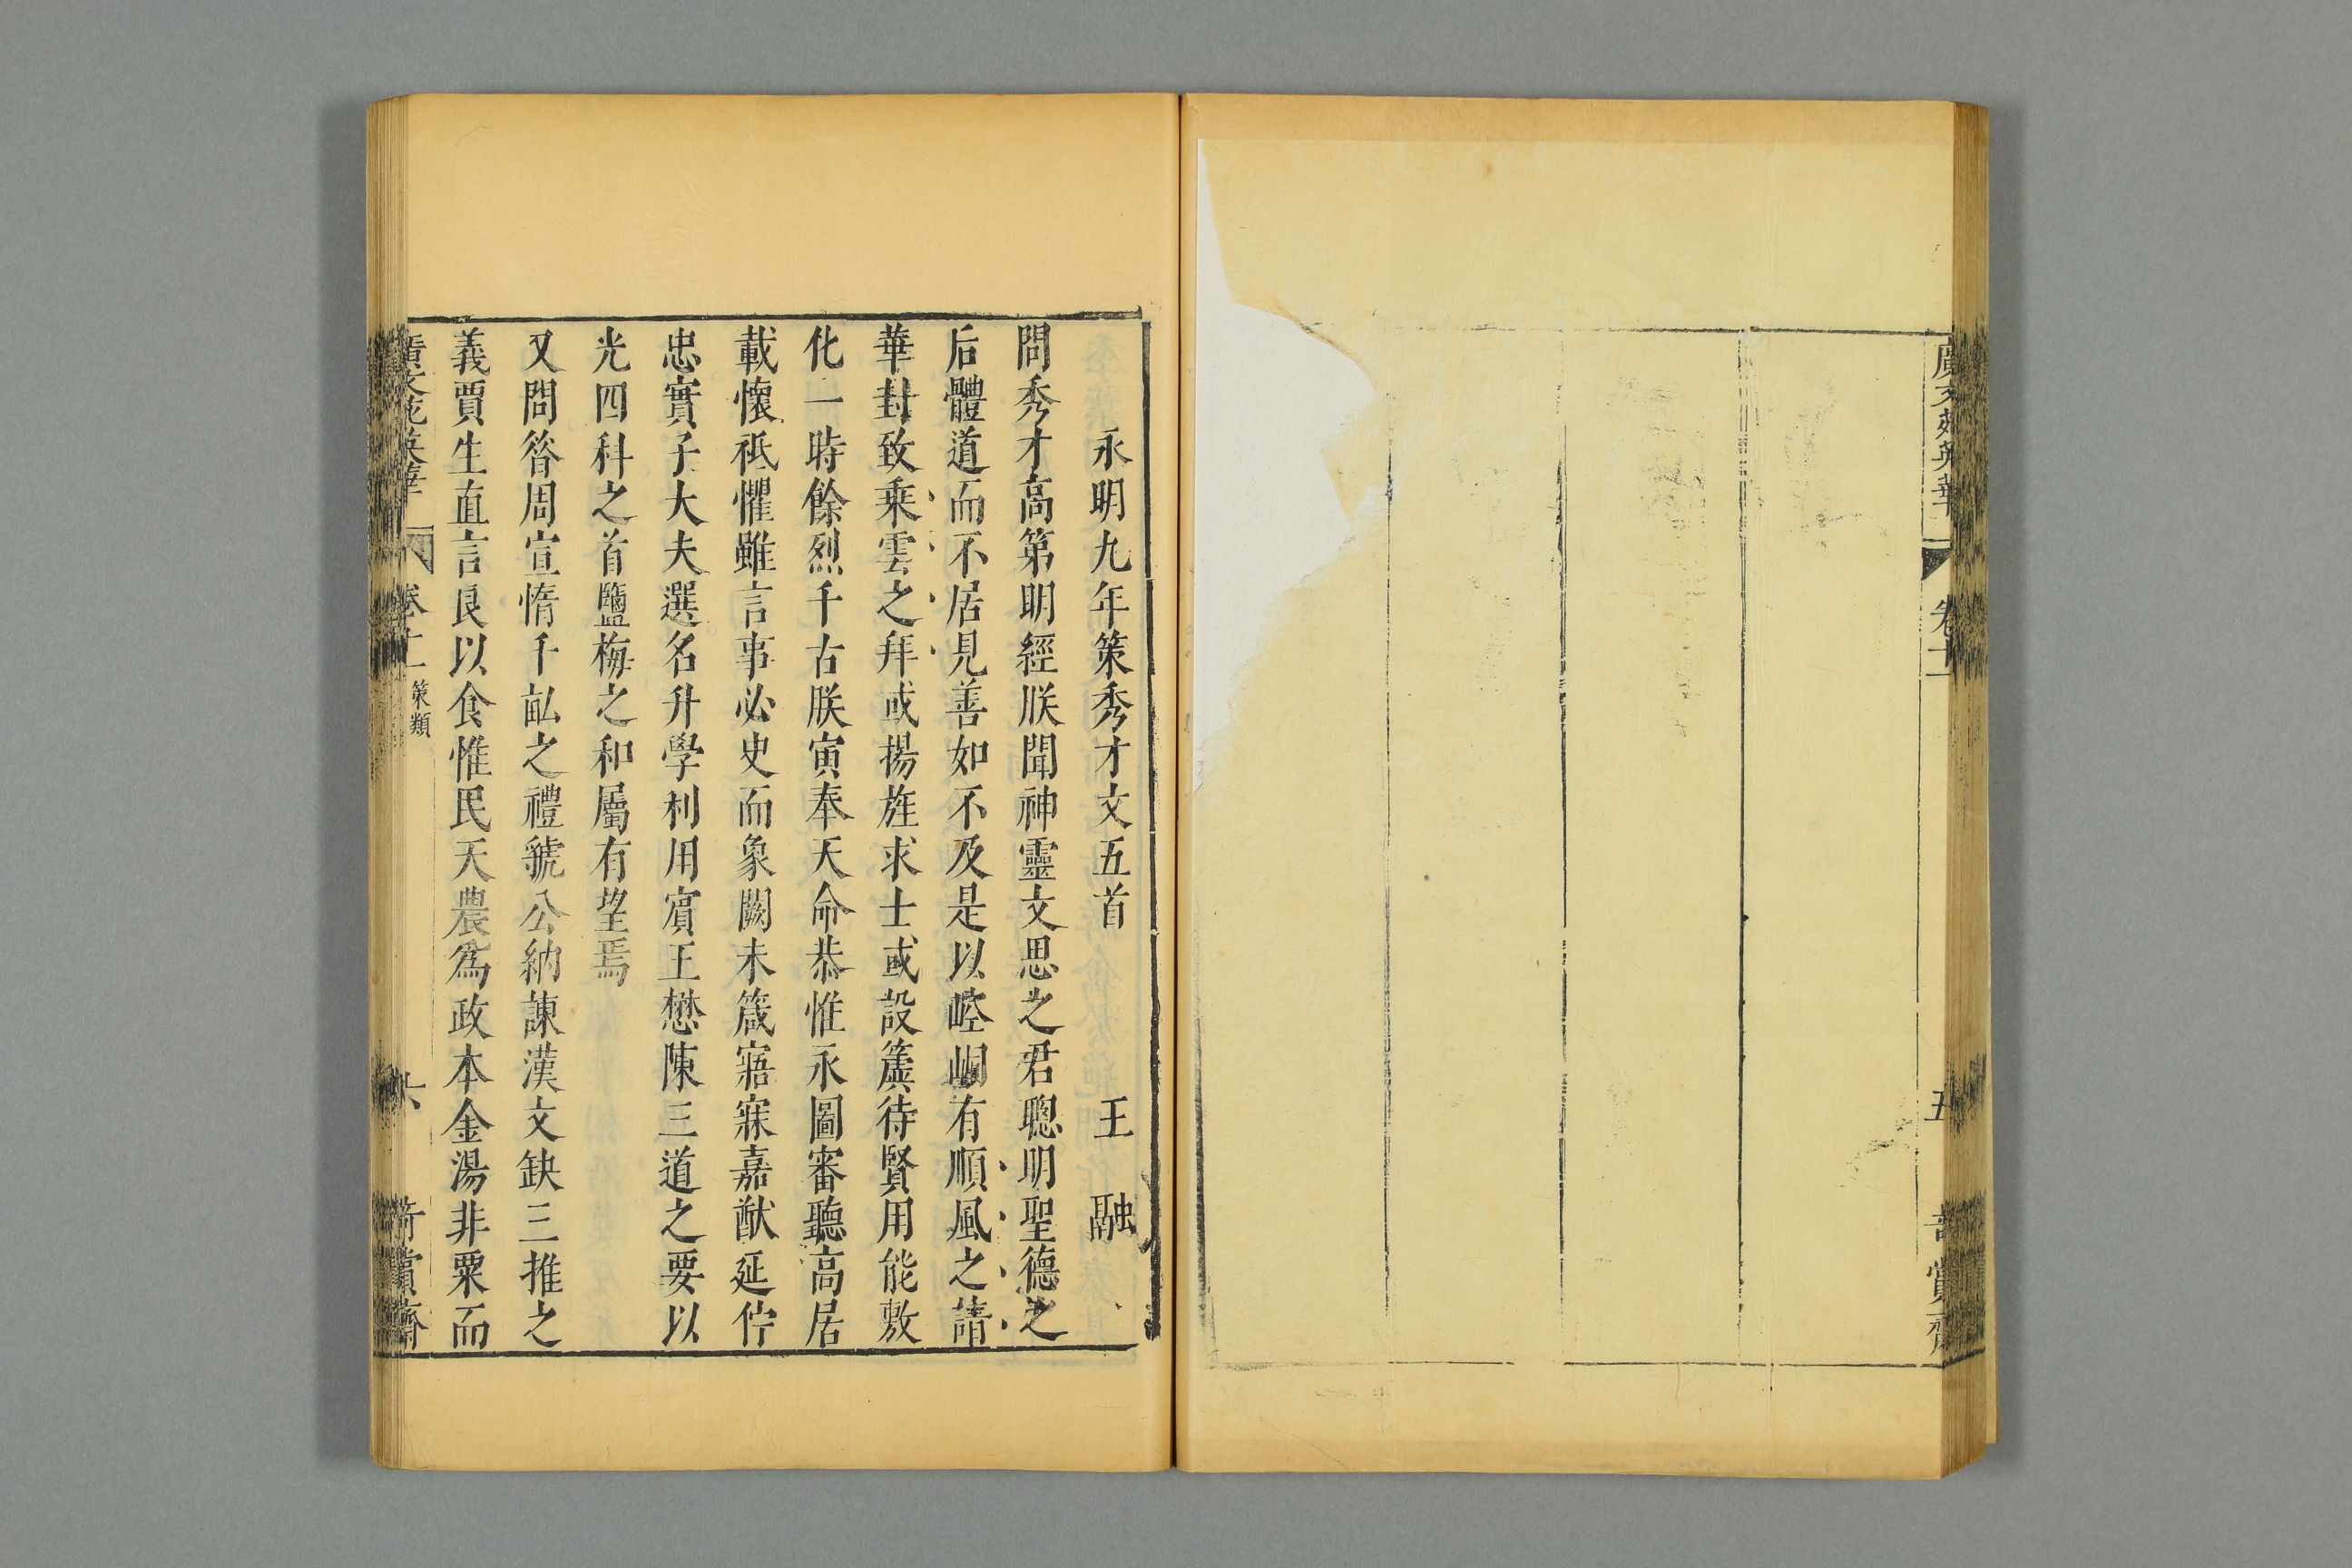 廣文苑英華
卷十一
五
賞齋
永明九年策秀才文五首　王融
問秀才高第明經朕聞神靈文思之君聰明聖德之
后體道而不居見善如不及是以崆峒有順風之請
華封致乗雲之拜或揚旌求士或設簴待賢用能敷
化一時餘烈千古朕寅奉天命恭惟永圖審聽高居
載懷祗懼雖言事必史而象闕未箴寤寐嘉猷延佇
忠實子大夫選名升學利用賔王懋陳三道之要以
光四科之首鹽梅之和屬有望焉
又問昝周宣惰千畝之禮虢公納諌漢文缺三推之
義賈生直言良以食惟民天農爲政本金湯非粟而
廣文苑英華
卷十一
策類
六
賞齋